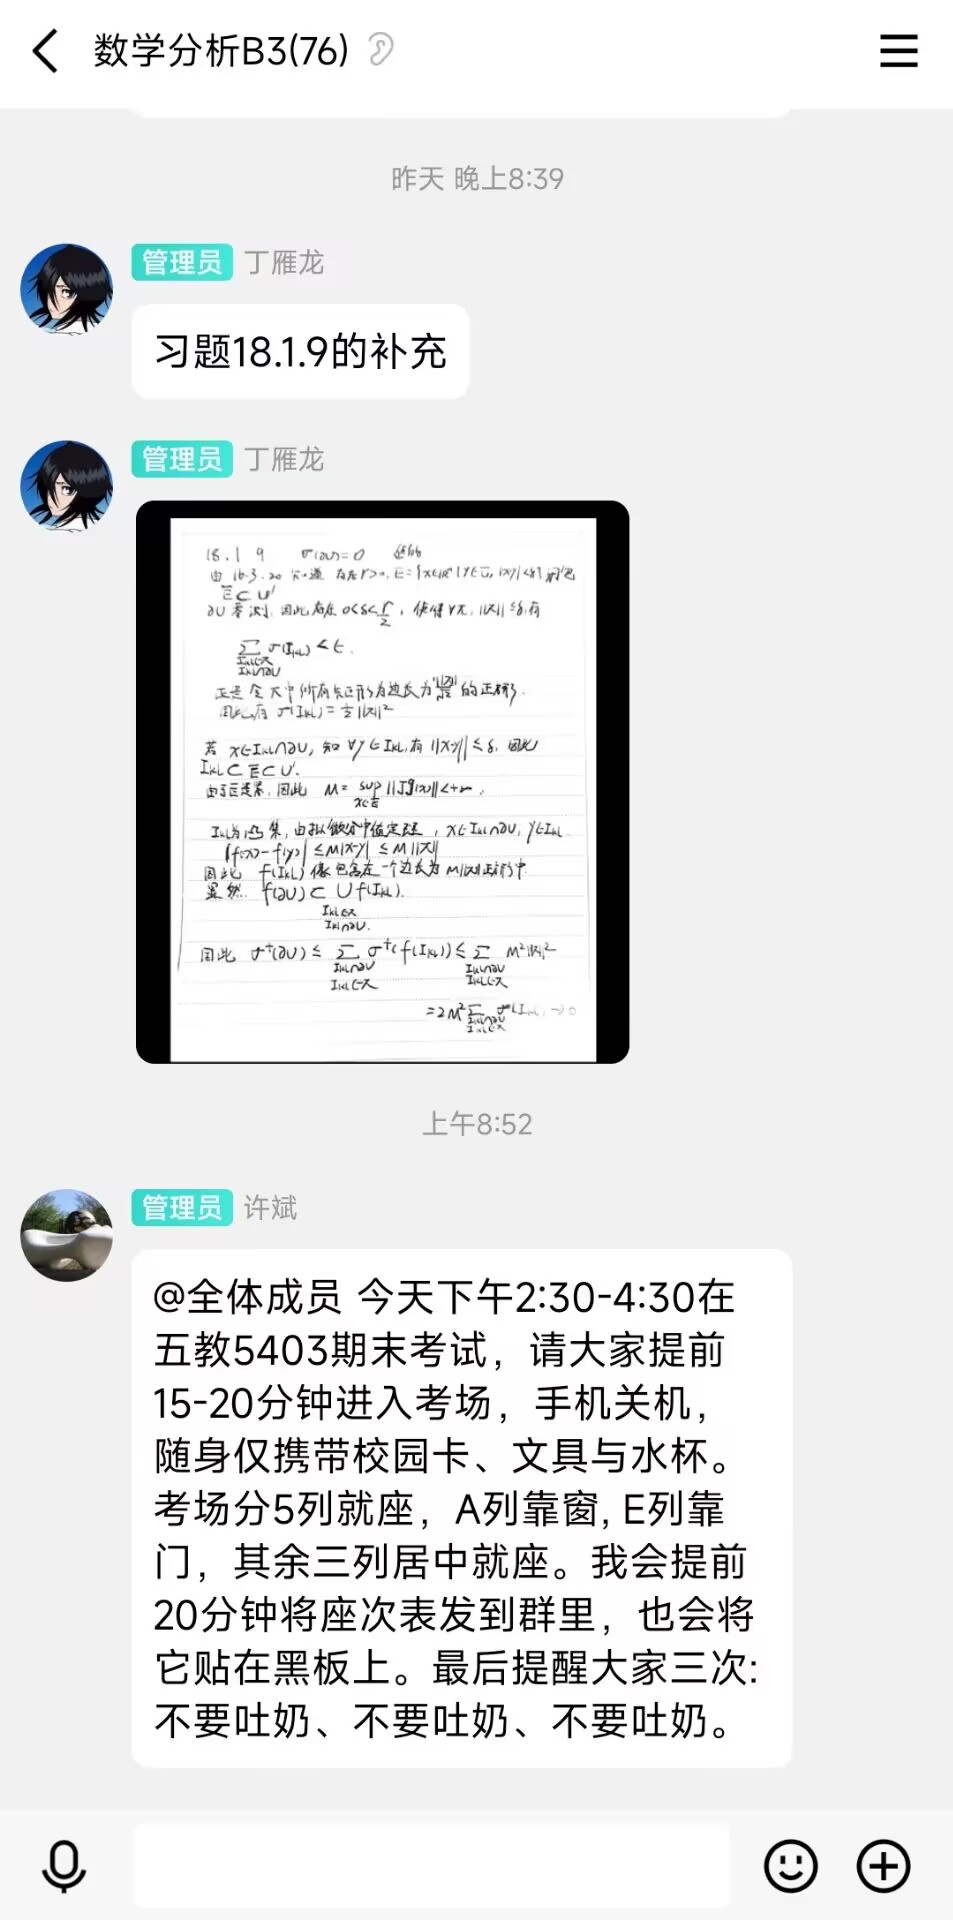 数学分析B3(76)
昨天 晚上8:39
管理员 丁雁龙
习题18.1.9的补充
管理员 丁雁龙
18.1 9 σ(∂U)=0
由 16.3.20 知道 存在r>0, E=
E⊂U'
∂U零测, 因此存在 0<δ<r/2, 使得∀π, ||π||≤δ, 有
∑σ(I_kl)<ε.
I_kl∈π
I_kl∩∂U
的正方形.
因此有 σ(I_kl)=½||π||²
若 x∈I_kl∩∂U, 知 ∀y∈I_kl, 有 ||x-y||≤δ, 因此
I_kl⊂E⊂U'.
因此 M= sup ||Jf(x)||<+∞.
x∈E
I_kl为凸集, 由拟微分中值定理, x∈I_kl∩∂U, y∈I_kl
|f(x)-f(y)|≤M|x-y|≤M||π||
因此 f(I_kl)像包含在一个边长为M||π||正方形中.
显然 f(∂U)⊂∪f(I_kl).
I_kl∈π
I_kl∩∂U.
因此 σ⁺(∂U)≤∑σ⁺(f(I_kl))≤∑M²||π||²
I_kl∩∂U I_kl∩∂U
I_kl∈π I_kl∈π
=2M²∑σ(I_kl)→0
I_kl∩∂U
I_kl∈π
上午8:52
管理员 许斌
@全体成员 今天下午2:30-4:30在
五教5403期末考试，请大家提前
15-20分钟进入考场，手机关机，
随身仅携带校园卡、文具与水杯。
考场分5列就座，A列靠窗, E列靠
门，其余三列居中就座。我会提前
20分钟将座次表发到群里，也会将
它贴在黑板上。最后提醒大家三次:
不要吐奶、不要吐奶、不要吐奶。